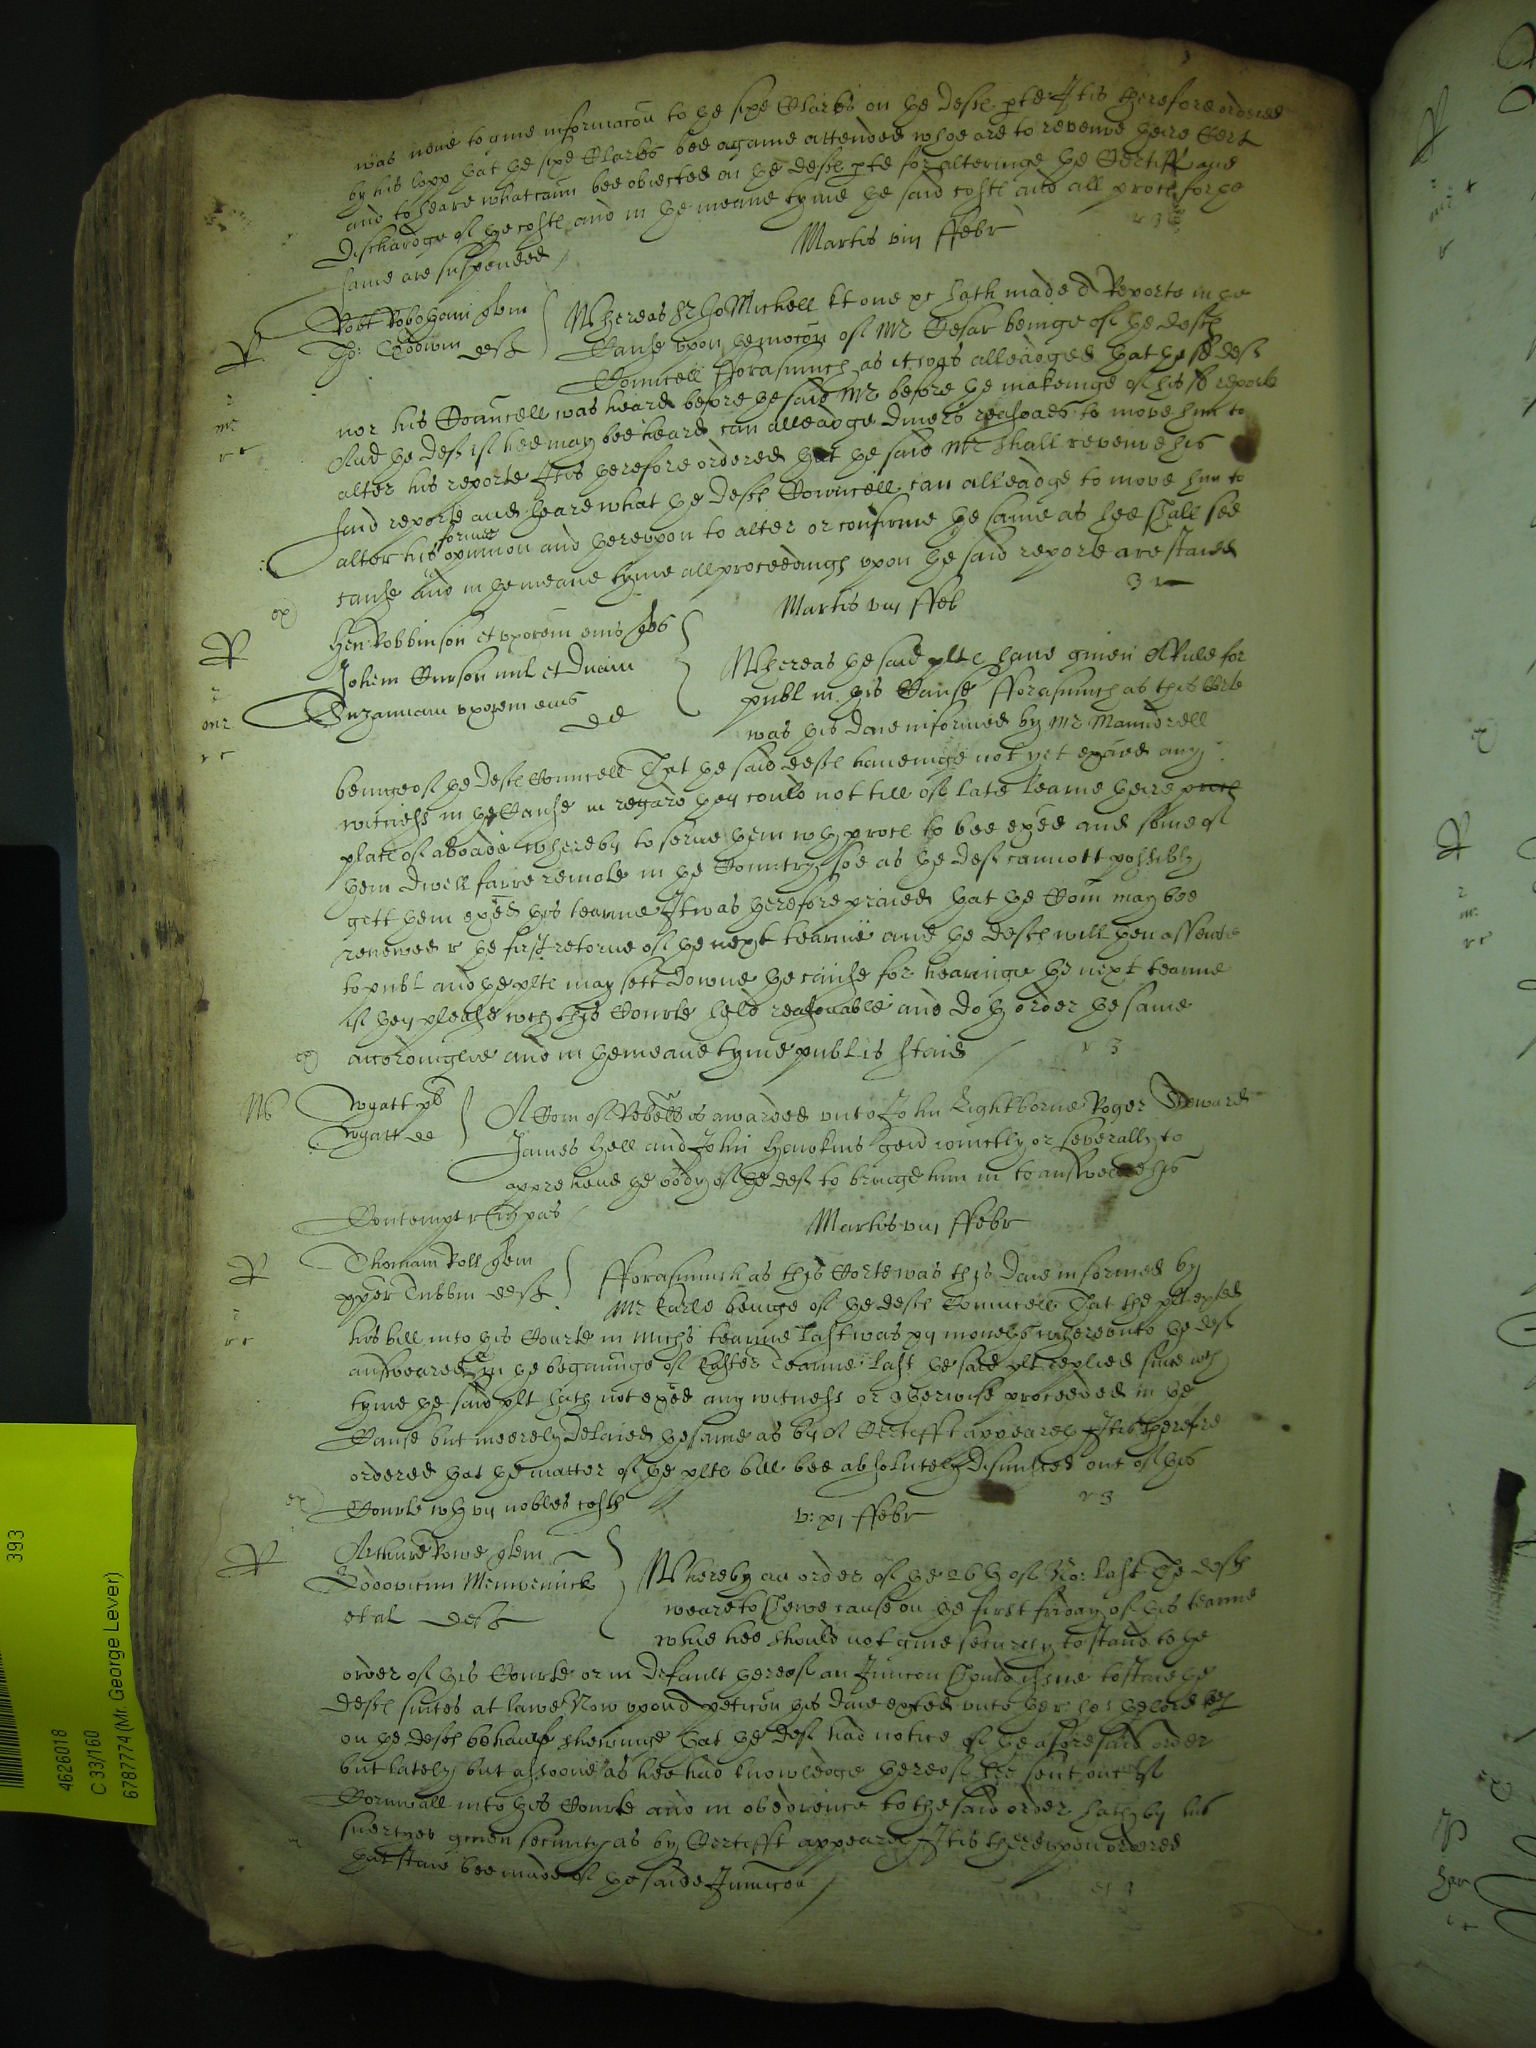 was none to give informacōn to the sixe Clarks on the Defts pte It is therefore ordered
by his lopp that the sixe Clarks bee againe attended whoe are to reveiwe theire Cert
and to heare what cann bee obiected on the defts pte for alteringe the Certifft and
dischardge of the costs and in the meane tyme the said costs and all proces for the
same are suspended
Martis viij ffebr
Tho: Goodwin deft
Whereas Sr Jo Michell kt one &c hath made a Reporte in the
Cause upon the mocōn of Mr Cesar beinge of the defts
Councell fforasmuch as it was alleadged that the sd deft
nor his Councell was heard before the said Mr before the makeinge of his sd reporte
And the deft if hee may bee heard can alleadge divers reasons to move him to
alter his reporte It is therefore ordered that the said Mr shall reveiwe his
said reporte and heare what the Defts Councell can alleadge to move him to
alter his former opinion and thereupon to alter or confirme the same as hee shall see
cause and in the meane tyme all proceedings upon the said reporte are staied
Martis viij ffeb
Hen Robbinson et uxorem eius qtes
Johem Curson mil et Dnam
Suzannam uxorem eius
de
Whereas the said plts have given A Rule for
publ in this Cause fforasmuch as this Corte
was this daie informed by Mr Maundrell
beinge of the Defts Councell That the said defts haveinge not yet exāed any
witness in the Cause in regard they could not till of late learne theire
place of aboade whereby to serve them wth proces to bee exēd and some of
them dwell farre remote in the Countrey soe as the deft cannott possibly
gett them exēd this tearme It was therefore praied that the Com may bee
renewed r the first retorne of the next tearme and the defts will then assente
to publ and the plts may sett downe the cause for hearinge the next tearme
if they please wch this Courte held reasonable and doth order the same
accordinglie and in the meane tyme publ is staid
r 3
Wyatt plt
Wyatt de
A Com of Rebell is awarded unto John Lightborne Roger Steward
James Hell and John Hawkins gen iointly or severally to
apprehend the body of the deft to bringe him in to answeare his
Contempt
Martis viij ffebr
Thomam Roll quem
deft
fforasmuch as this Corte was this daie informed by
Mr Earle beinge of the defts Councell That the plt exhited
his bill into this Courte in Michs tearme last was xij moneths whereunto the deft
answeared in the beginninge of Easter Tearme last the said plt replied since wch
tyme the said plt hath not exēd any witness or otherwise proceeded in the
Cause but meerely delaied the same as by A Certifft appeareth It is therefore
ordered that the matter of the plts bill bee absolutely dismissed out of this
Courte wth vij nobles costs
r 3
v: xj ffebr
Arthure Rowe quem
et al defts
Whereby an order of the 26th of No: last The defts
weare to shewe cause on the first friday of this tearme
whie hee should not give security to stand to the
order of this Courte or in default thereof an Iniuncōn should issue to staie the
defts suites at lawe Now upon A peticōn this daie exhited unto the r ho: the lord
on the defts behaulfe shewinge that the deft had notice of the aforesaid order
but lately but assoone as hee had knowledge thereof hee sent out of
Cornwall into this Courte and in obedience to the said order hath by his
suertyes given security as by Certifft appeareth It is thereupon ordered
that staie bee made of the saide Iniuncōn
393
4626018
C 33/160
6787774 (Mr. George Lever)